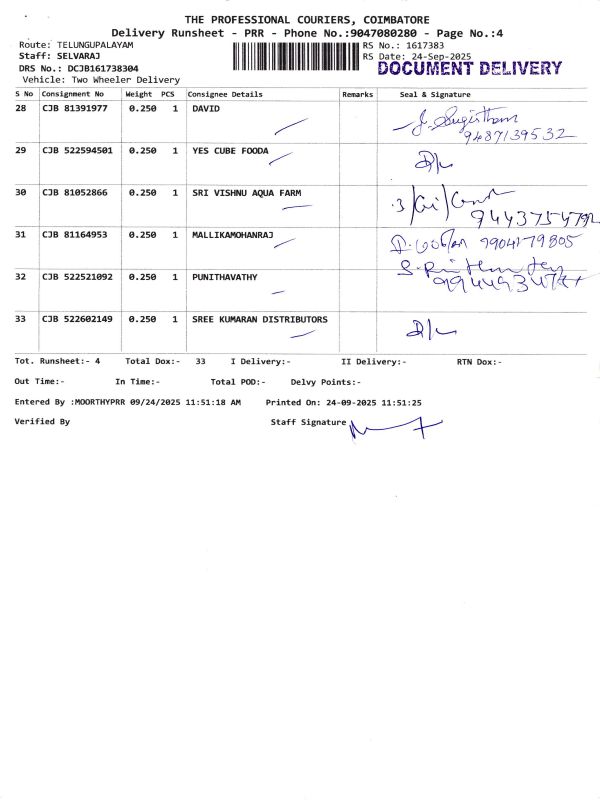 THE PROFESSIONAL COURIERS, COIMBATORE
Delivery Runsheet - PRR - Phone No.:9047080280 - Page No.:4
Route: TELUNGUPALAYAM RS No.: 1617383
Staff: SELVARAJ RS Date: 24-Sep-2025
DRS No.: DCJB161738304 DOCUMENT DELIVERY
Vehicle: Two Wheeler Delivery
S No Consignment No Weight PCS Consignee Details Remarks Seal & Signature
28 CJB 81391977 0.250 1 DAVID
9487139532
29 CJB 522594501 0.250 1 YES CUBE FOODA
30 CJB 81052866 0.250 1 SRI VISHNU AQUA FARM
31 CJB 81164953 0.250 1 MALLIKAMOHANRAJ 7904179805
32 CJB 522521092 0.250 1 PUNITHAVATHY
33 CJB 522602149 0.250 1 SREE KUMARAN DISTRIBUTORS
Tot. Runsheet:- 4 Total Dox:- 33 I Delivery:- II Delivery:- RTN Dox:-
Out Time:- In Time:- Total POD:- Delvy Points:-
Entered By :MOORTHYPRR 09/24/2025 11:51:18 AM Printed On: 24-09-2025 11:51:25
Verified By Staff Signature